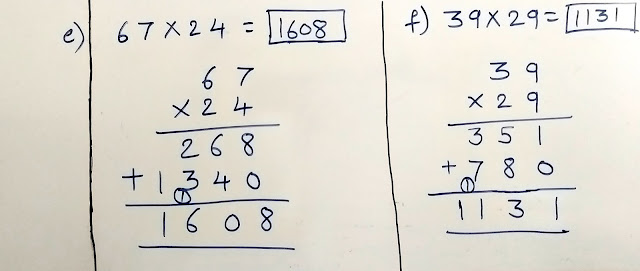 e) 67 × 24 = 1608
67
× 24
268
+ 1340
1
1608
f) 39 × 29 = 1131
39
× 29
351
+ 780
1
1131